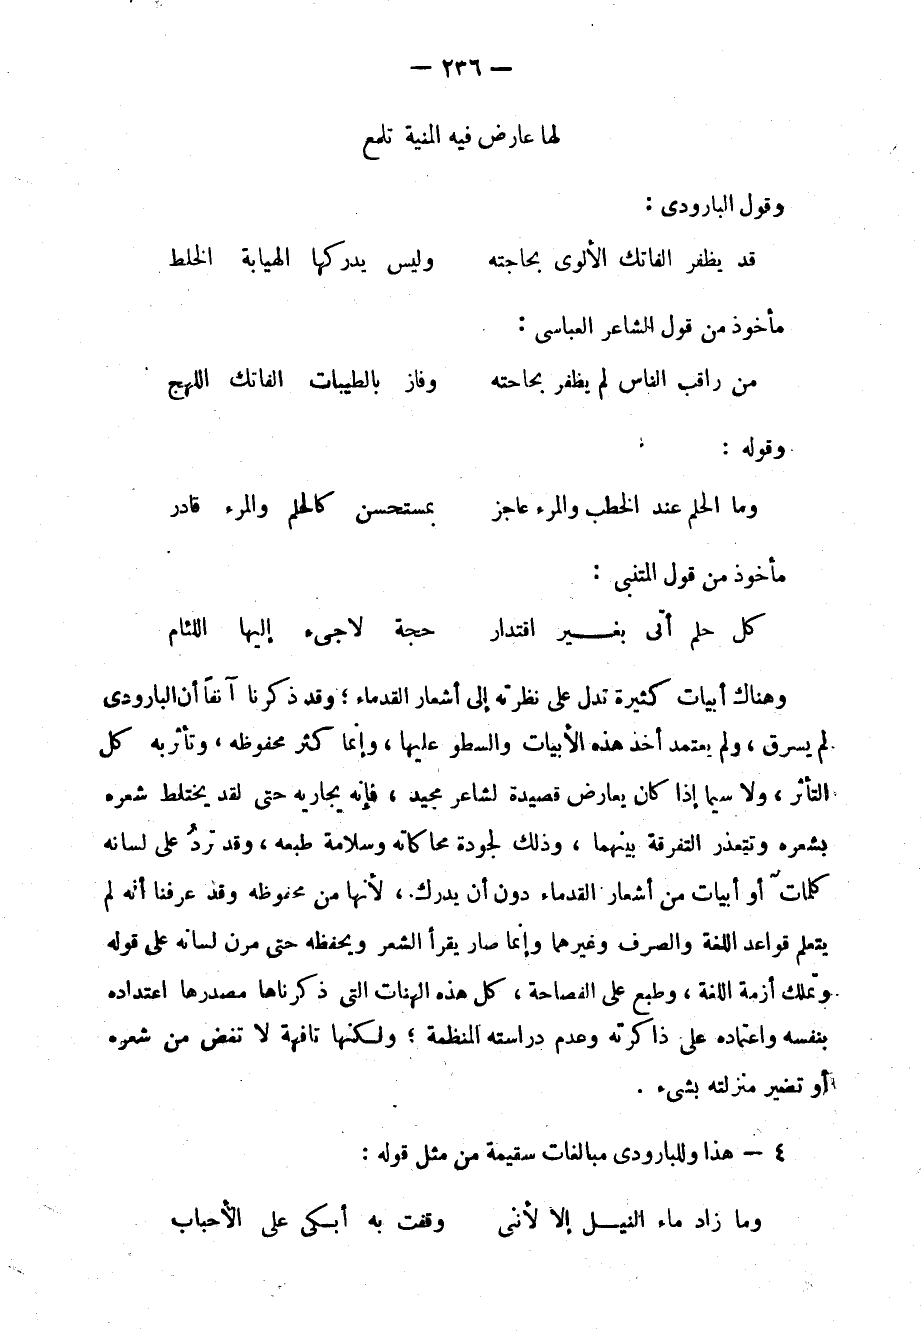 — ٢٣٦ —
لها عارض فيه المنية تلمع
وقول البارودى :
قد يظفر الفاتك الألوى بحاجته وليس يدركها الهيابة الخلط
مأخوذ من قول الشاعر العباسى :
من راقب الناس لم يظفر بحاحته وفاز بالطيبات الفاتك اللهج
وقوله :
وما الحلم عند الخطب والمرء عاجز بمستحسن كالحلم والمرء قادر
مأخوذ من قول المتنبى :
كل حلم أتى بغير اقتدار حجة لاجىء إليها اللثام
وهناك أبيات كثيرة تدل على نظرته إلى أشعار القدماء ؛ وقد ذكرنا آنفاً أن البارودى
لم يسرق ، ولم يعتمد أخذ هذه الأبيات والسطو عليها ، وإنما كثر محفوظه ، وتأثر به كل
التأثر ، ولا سيما إذا كان يعارض قصيدة لشاعر مجيد ، فإنه يجاريه حتى لقد يختلط شعره
بشعره وتتعذر التفرقة بينهما ، وذلك لجودة محاكاته وسلامة طبعه ، وقد تردُ على لسانه
كلمات أو أبيات من أشعار القدماء دون أن يدرك ، لأنها من محفوظه وقد عرفنا أنه لم
يتعلم قواعد اللغة والصرف وغيرهما وإنما صار يقرأ الشعر ويحفظه حتى مرن لسانه على قوله
وتملك أزمة اللغة ، وطبع على الفصاحة ، كل هذه الهنات التى ذكرناها مصدرها اعتداده
بنفسه واعتماده على ذاكرته وعدم دراسته المنظمة ؛ ولكنها تافهة لا تغض من شعره
أو تضير منزلته بشىء .
٤ — هذا وللبارودى مبالغات سقيمة من مثل قوله :
وما زاد ماء النيل إلا لأننى وقفت به أبكى على الأحباب